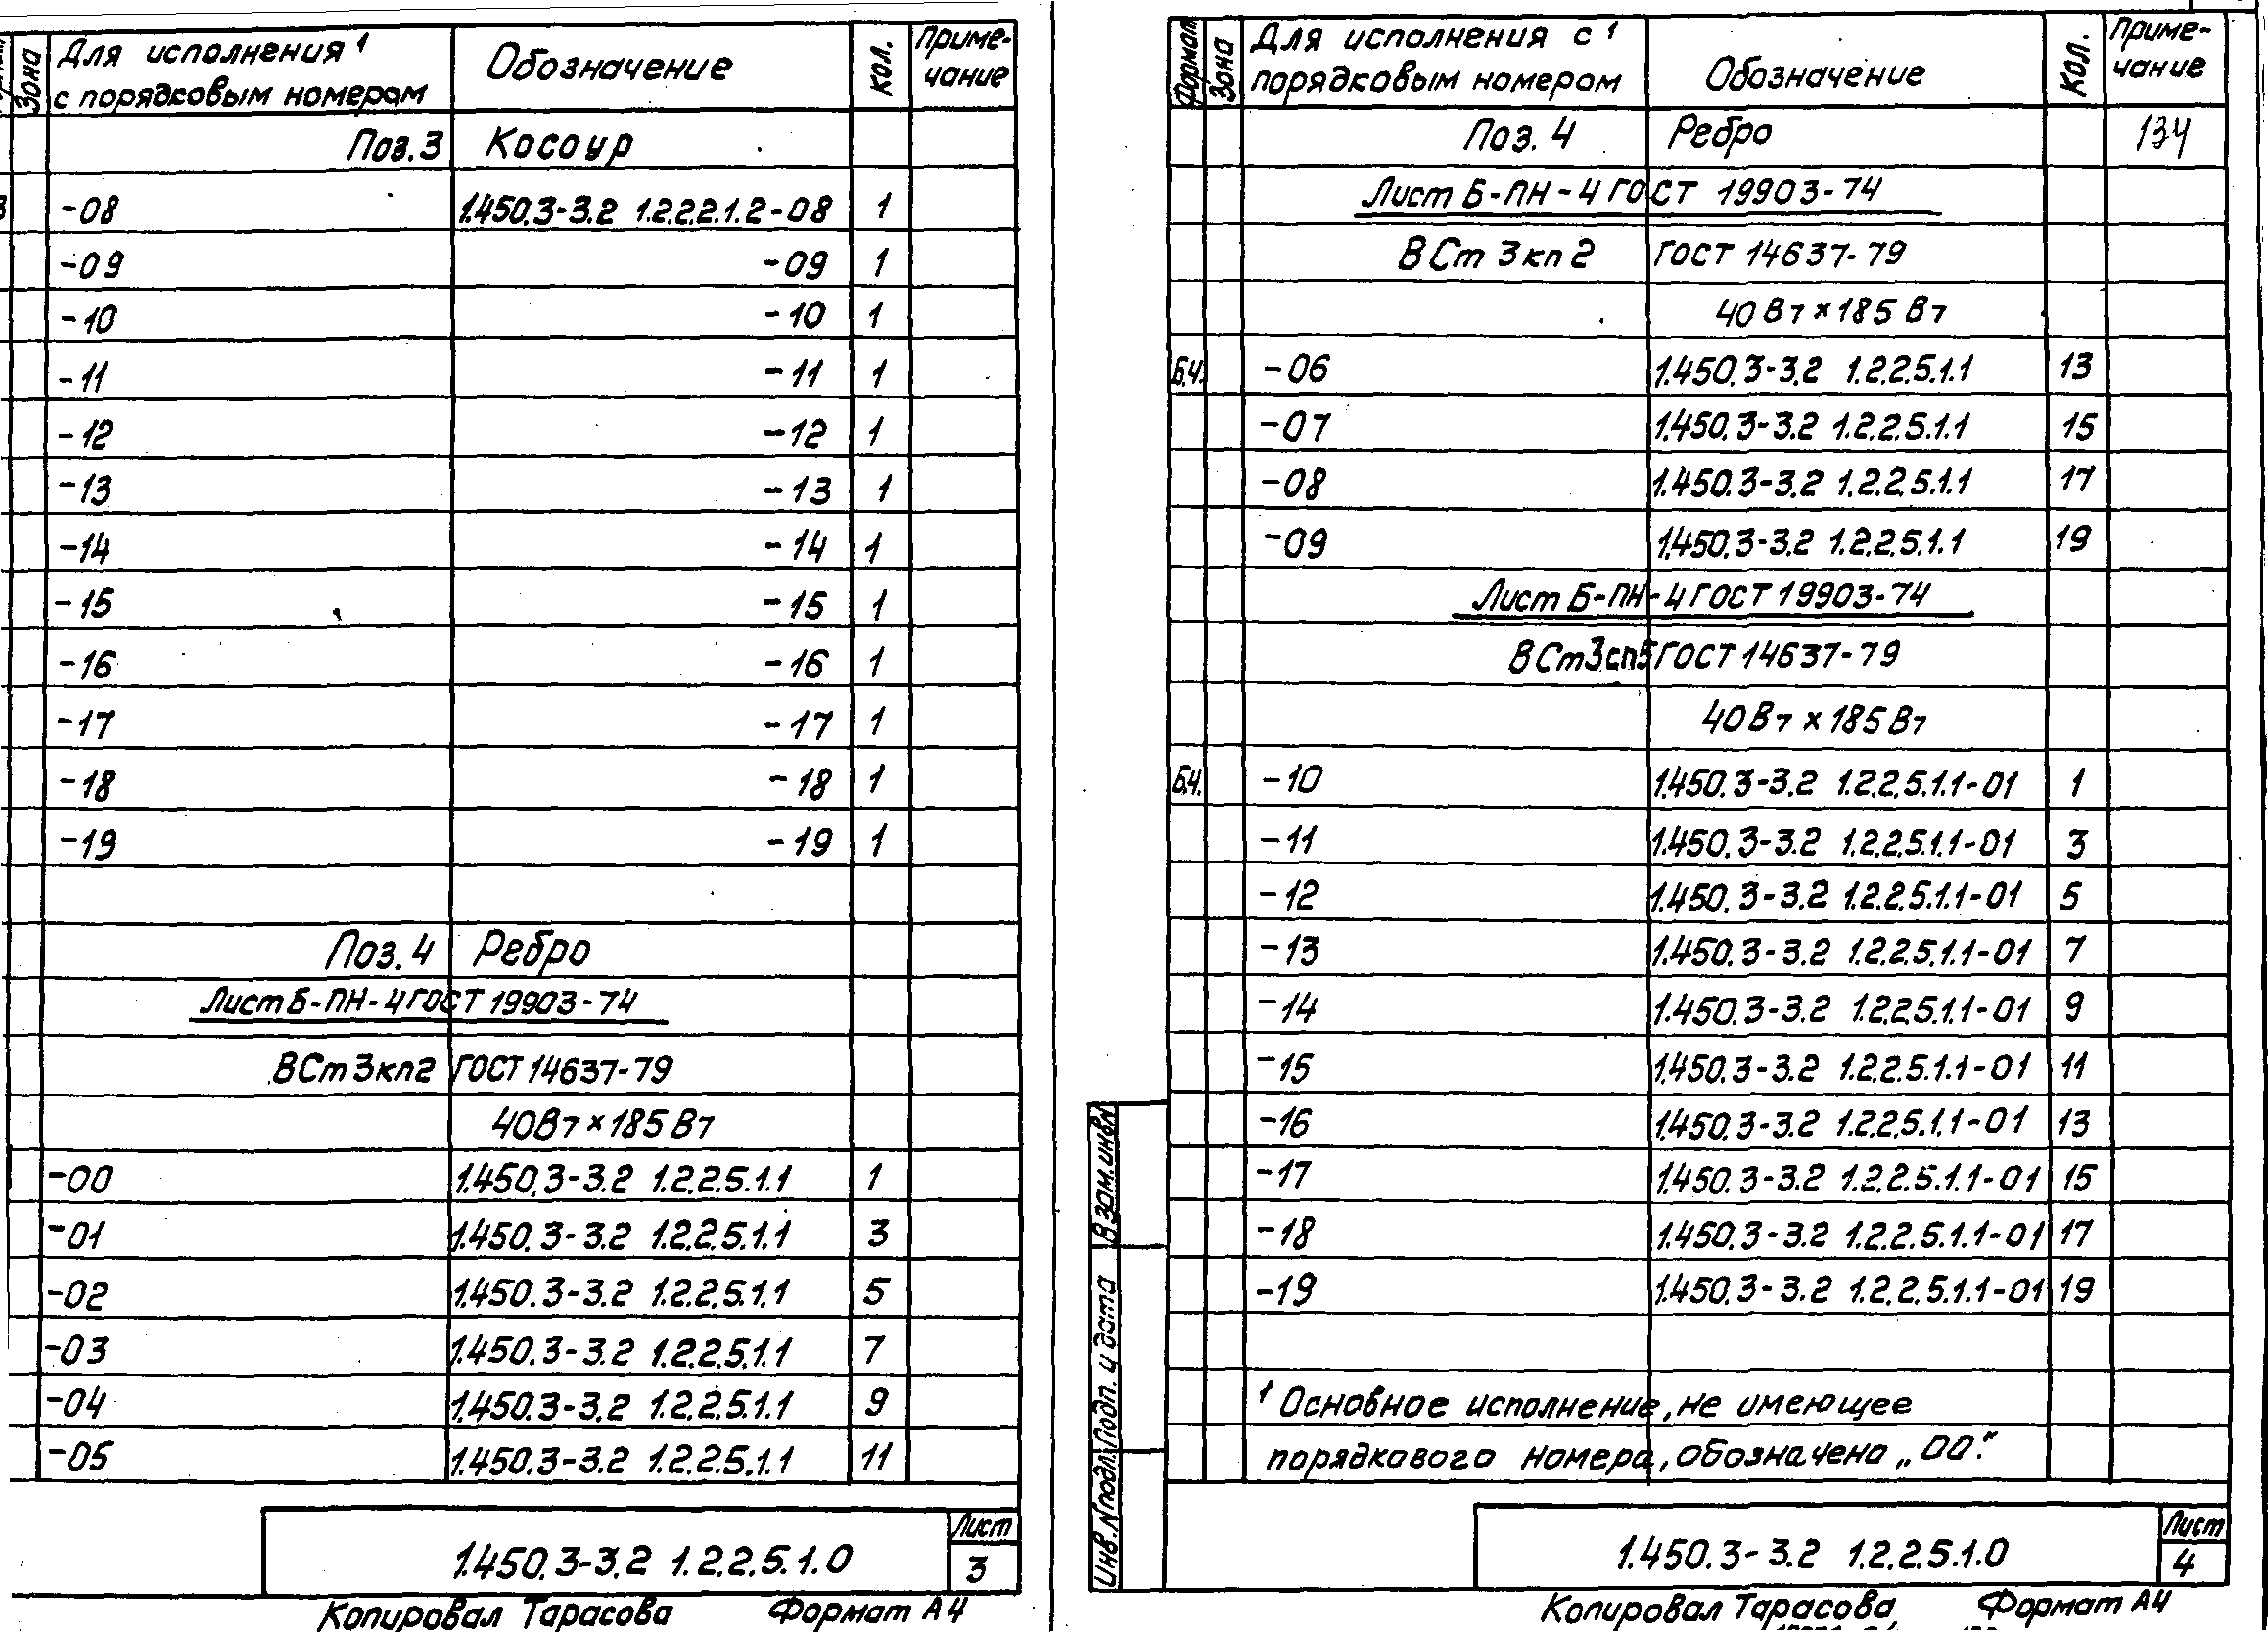 Зона
Для исполнения ¹
с порядковым номером
Обозначение
Кол.
Приме-
чание
Поз.3 Косоур
-08 1.450.3-3.2 1.2.2.2.1.2-08 1
-09 -09 1
-10 -10 1
-11 -11 1
-12 -12 1
-13 -13 1
-14 -14 1
-15 -15 1
-16 -16 1
-17 -17 1
-18 -18 1
-19 -19 1
Поз.4 Ребро
Лист Б-ПН-4 ГОСТ 19903-74
ВСт3кп2 ГОСТ 14637-79
40Вт×185Вт
-00 1.450.3-3.2 1.2.2.5.1.1 1
-01 1.450.3-3.2 1.2.2.5.1.1 3
-02 1.450.3-3.2 1.2.2.5.1.1 5
-03 1.450.3-3.2 1.2.2.5.1.1 7
-04 1.450.3-3.2 1.2.2.5.1.1 9
-05 1.450.3-3.2 1.2.2.5.1.1 11
1.450.3-3.2 1.2.2.5.1.0
Лист
3
Копировал Тарасова Формат А4
Формат
Зона
Для исполнения с ¹
порядковым номером
Обозначение
Кол.
Приме-
чание
Поз. 4 Ребро 134
Лист Б-ПН-4 ГОСТ 19903-74
ВСт 3кп2 ГОСТ 14637-79
40Вт×185Вт
Б.Ч. -06 1.450.3-3.2 1.2.2.5.1.1 13
-07 1.450.3-3.2 1.2.2.5.1.1 15
-08 1.450.3-3.2 1.2.2.5.1.1 17
-09 1.450.3-3.2 1.2.2.5.1.1 19
Лист Б-ПН-4 ГОСТ 19903-74
ВСт3сп5 ГОСТ 14637-79
40Вт×185Вт
Б.Ч. -10 1.450.3-3.2 1.2.2.5.1.1-01 1
-11 1.450.3-3.2 1.2.2.5.1.1-01 3
-12 1.450.3-3.2 1.2.2.5.1.1-01 5
-13 1.450.3-3.2 1.2.2.5.1.1-01 7
-14 1.450.3-3.2 1.2.2.5.1.1-01 9
-15 1.450.3-3.2 1.2.2.5.1.1-01 11
-16 1.450.3-3.2 1.2.2.5.1.1-01 13
-17 1.450.3-3.2 1.2.2.5.1.1-01 15
-18 1.450.3-3.2 1.2.2.5.1.1-01 17
-19 1.450.3-3.2 1.2.2.5.1.1-01 19
¹ Основное исполнение, не имеющее
порядкового номера, обозначена „00".
Взам.инв.N
Подп. и дата
Инв.Nподл.
1.450.3-3.2 1.2.2.5.1.0
Лист
4
Копировал Тарасова Формат А4